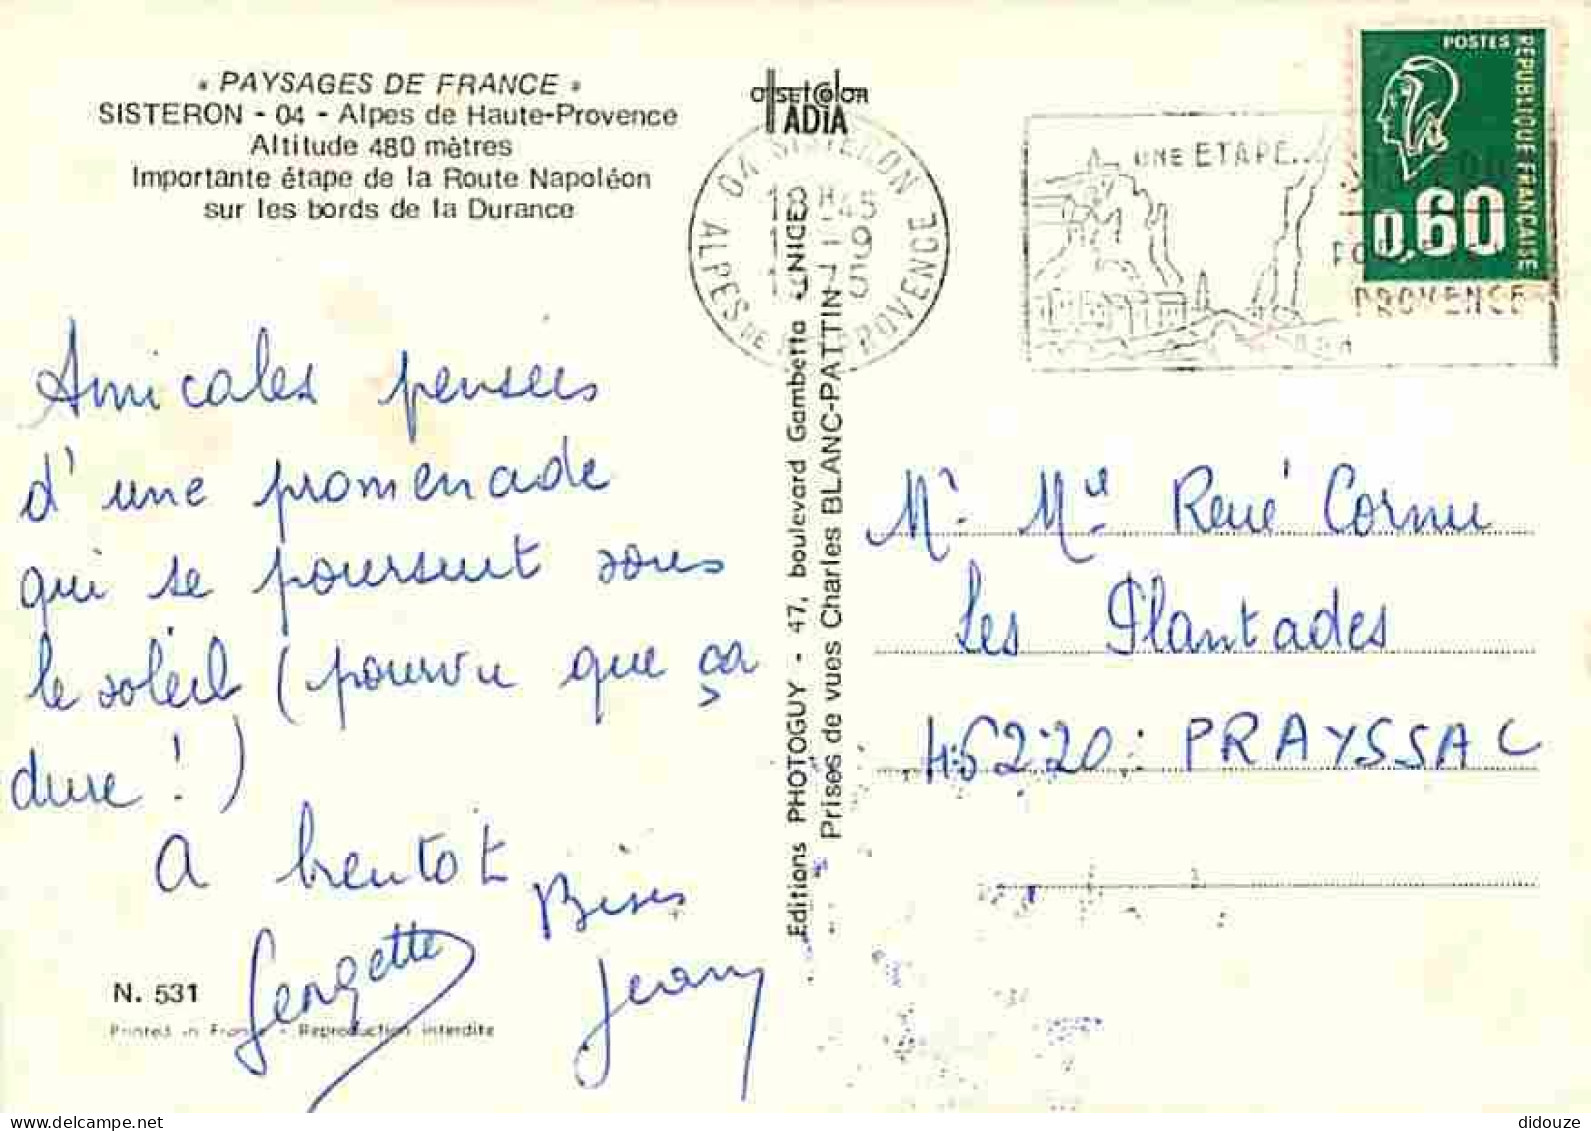 « PAYSAGES DE FRANCE »
SISTERON - 04 - Alpes de Haute-Provence
Altitude 480 mètres
Importante étape de la Route Napoléon
sur les bords de la Durance
Amicales pensées
d'une promenade
qui se poursuit sous
le soleil (pourvu que ça
dure !)
A bientot
Bises
Georgette
Jeany
N. 531
Printed in France - Reproduction interdite
OFFSETCOLOR
ADIA
04 SISTERON
18 H 45
ALPES DE PROVENCE
Editions PHOTOGUY - 47, boulevard Gambetta - NICE
Prises de vues Charles BLANC-PATTIN
UNE ETAPE...
PROVENCE
POSTES
REPUBLIQUE FRANÇAISE
0,60
Mr Me René Cornu
Les Plantades
46220 : PRAYSSAC
delcampe.net
didouze